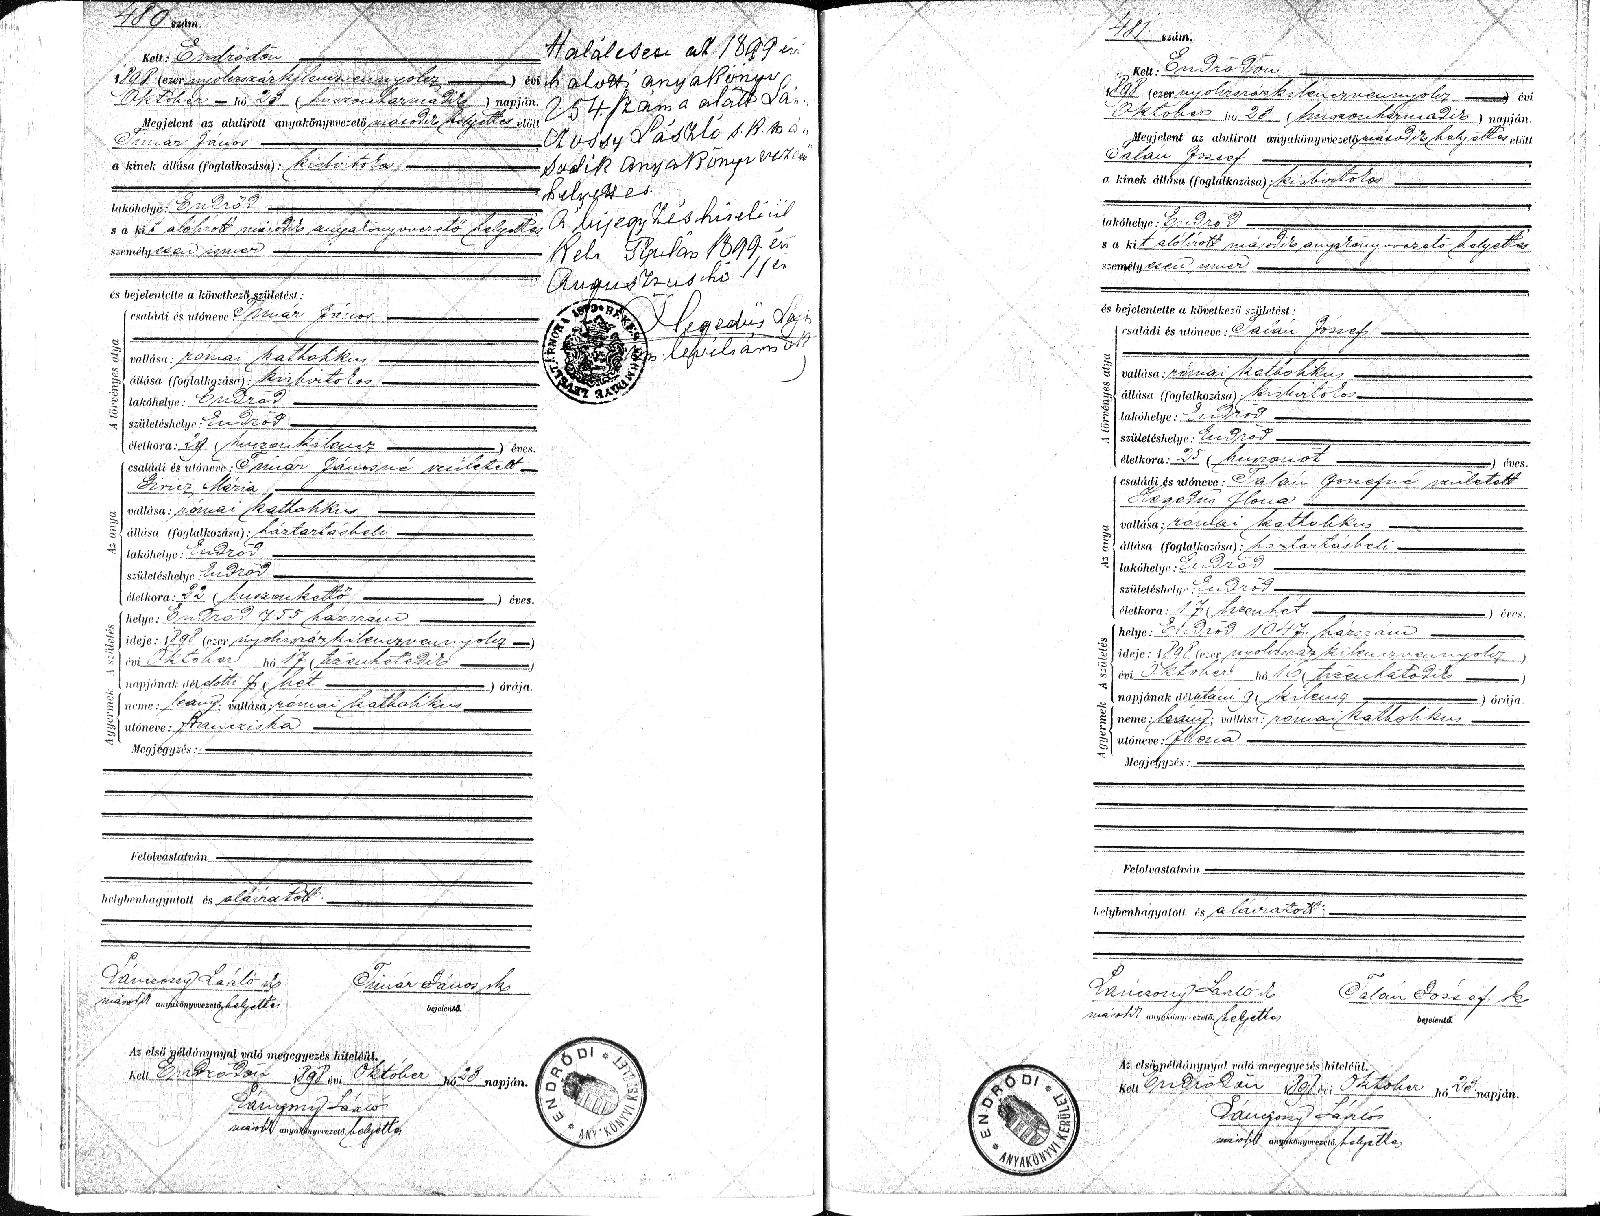 480 szám.
Kelt: Endrődön
1898 (ezernyolcszázkilencvennyolcz) évi
Október hó 23 (huszonharmadik) napján.
Megjelent az alulirott anyakönyvvezető második helyettes előtt
Timár János
a kinek állása (foglalkozása): kisbirtokos
lakóhelye: Endrőd
s a kit alólirott második anyakönyvvezető helyettes
személyesen ismer
és bejelentette a következő születést:
A törvényes atya
családi és utóneve Timár János
vallása: római katholikus
állása (foglalkozása): kisbirtokos
lakóhelye: Endrőd
születéshelye: Endrőd
életkora: 29 (huszonkilencz) éves.
Az anya
családi és utóneve: Timár Jánosné született
Mária
vallása: római katholikus
állása (foglalkozása): háztartásbeli
lakóhelye: Endrőd
születéshelye: Endrőd
életkora: 22 (huszonkettő) éves.
A születés
helye: Endrőd 755 házszám
ideje: 1898 (ezer nyolcszázkilenczvennyolcz)
évi Október hó 17 (tizenhetedik)
napjának délelőtti 7 (hét) órája.
A gyermek
neme: leány; vallása: római katholikus
utóneve: Francziska
Megjegyzés:
Felolvastatván
helybenhagyatott és aláiratott.
László
második anyakönyvvezető helyettes
Timár János sk
bejelentő.
Az első példánynyal való megegyezés hiteléül.
Kelt Endrődön 1898 évi Október hó 23 napján.
László
második anyakönyvvezető helyettes
ENDRŐDI ANYAKÖNYVI KERÜLET
Halálesete az 1899 évi
halotti anyakönyv
254 száma alatt
László s.k. má-
sodik anyakönyvvezető
helyettes
A bejegyzés hiteléül
Kelt Gyulán 1899 évi
Augusztus hó 11 én
Hegedüs
BÉKÉS VÁRMEGYE LEVÉLTÁRNOKA
481 szám.
Kelt: Endrődön
1898 (ezernyolcszázkilenczvennyolcz) évi
Október hó 23 (huszonharmadik) napján.
Megjelent az alulirott anyakönyvvezető második helyettes előtt
Talán József
a kinek állása (foglalkozása): kisbirtokos
lakóhelye: Endrőd
s a kit alólirott második anyakönyvvezető helyettes
személyesen ismer
és bejelentette a következő születést:
A törvényes atya
családi és utóneve: Talán József
vallása: római katholikus
állása (foglalkozása) kisbirtokos
lakóhelye: Endrőd
születéshelye: Endrőd
életkora: 25 (huszonöt) éves.
Az anya
családi és utóneve: Talán Józsefné született
Hegedüs Ilona
vallása: római katholikus
állása (foglalkozása): háztartásbeli
lakóhelye: Endrőd
születéshelye: Endrőd
életkora: 17 (tizenhét) éves.
A születés
helye: Endrőd 1047 házszám
ideje: 1898 (ezer nyolcszázkilenczvennyolcz)
évi Október hó 16 (tizenhatodik)
napjának délutáni 9 (kilencz) órája.
A gyermek
neme: leány; vallása: római katholikus
utóneve: Ilona
Megjegyzés:
Felolvastatván
helybenhagyatott és aláiratott.
László
második anyakönyvvezető helyettes
Talán József sk
bejelentő.
Az első példánynyal való megegyezés hiteléül.
Kelt Endrődön 1898 évi Október hó 23 napján.
László
második anyakönyvvezető helyettes
ENDRŐDI ANYAKÖNYVI KERÜLET